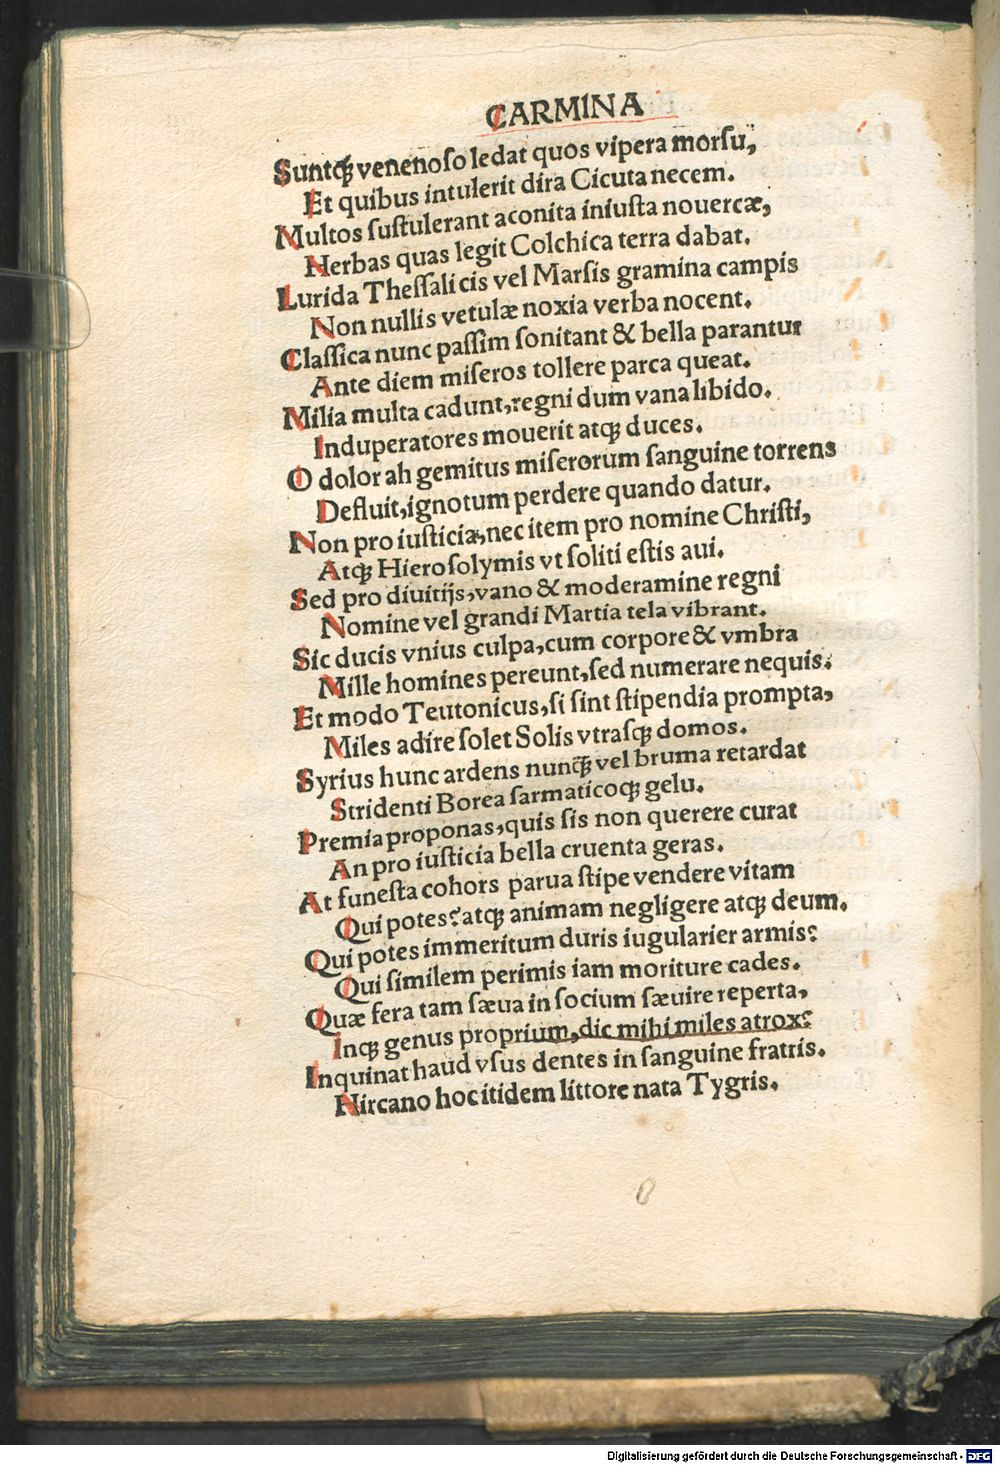 CARMINA
Suntqꝫ venenoſo ledat quos vipera morſu,
Et quibus intulerit dira Cicuta necem.
Multos ſuſtulerant aconita iniuſta nouercæ,
Herbas quas legit Colchica terra dabat.
Lurida Theſſalicis vel Marſis gramina campis
Non nullis vetulæ noxia verba nocent.
Claſſica nunc paſſim ſonitant & bella parantur
Ante diem miſeros tollere parca queat.
Milia multa cadunt,regni dum vana libido.
Induperatores mouerit atqꝫ duces.
O dolor ah gemitus miſerorum ſanguine torrens
Defluit,ignotum perdere quando datur.
Non pro iuſticia,nec item pro nomine Chriſti,
Atqꝫ Hieroſolymis vt ſoliti eſtis aui.
Sed pro diuitijs,vano & moderamine regni
Nomine vel grandi Martia tela vibrant.
Sic ducis vnius culpa,cum corpore & vmbra
Mille homines pereunt,ſed numerare nequis.
Et modo Teutonicus,ſi ſint ſtipendia prompta,
Miles adire ſolet Solis vtraſqꝫ domos.
Syrius hunc ardens nunqꝫ̃ vel bruma retardat
Stridenti Borea ſarmaticoqꝫ gelu.
Premia proponas,quis ſis non querere curat
An pro iuſticia bella cruenta geras.
At funeſta cohors parua ſtipe vendere vitam
Qui potes?atqꝫ animam negligere atqꝫ deum.
Qui potes immeritum duris iugularier armis?
Qui ſimilem perimis iam moriture cades.
Quæ fera tam ſæua in ſocium ſæuire reperta,
Inqꝫ genus proprium,dic mihi miles atrox?
Inquinat haud vſus dentes in ſanguine fratris.
Hircano hoc itidem littore nata Tygris.
Digitalisierung gefördert durch die Deutsche Forschungsgemeinschaft - DFG